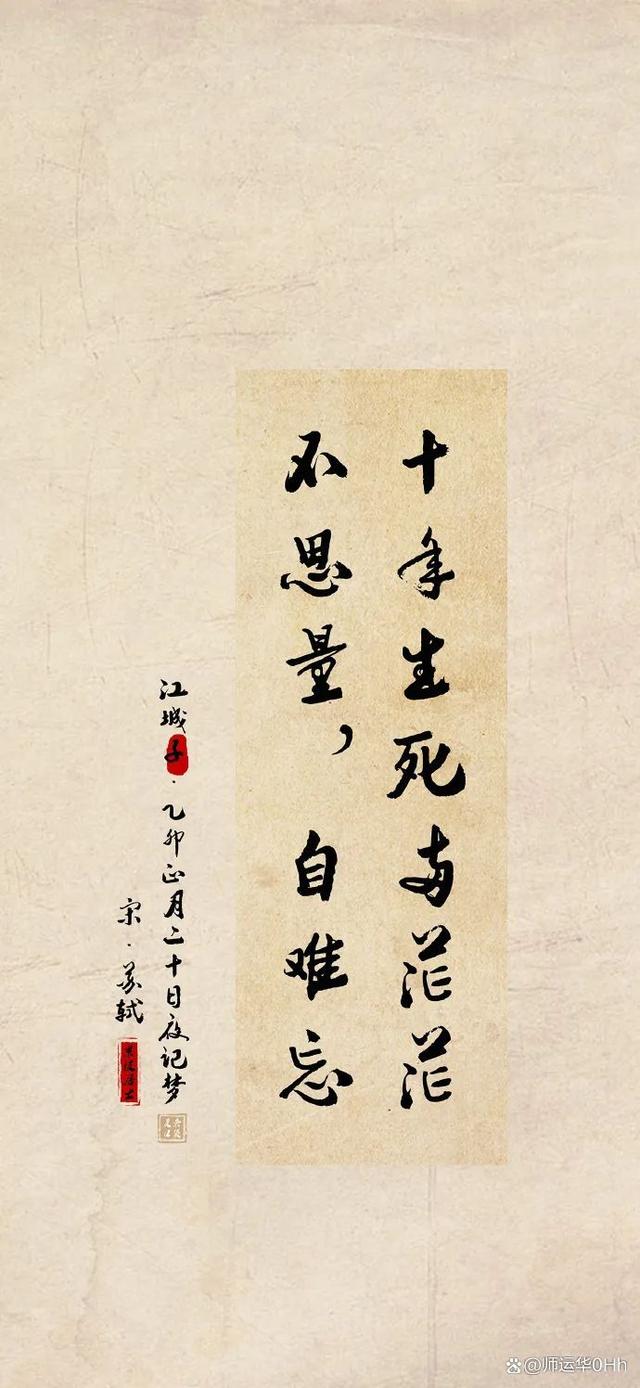 十年生死两茫茫
不思量，自难忘
江城子·乙卯正月二十日夜记梦
宋·苏轼
@师运华0Hh